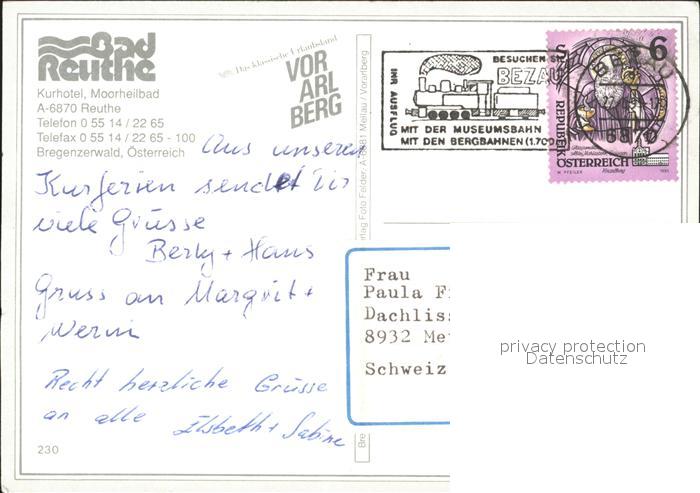 Bad
Reuthe
Kurhotel, Moorheilbad
A-6870 Reuthe
Telefon 0 55 14 / 22 65
Telefax 0 55 14 / 22 65 - 100
Bregenzerwald, Österreich
Das klassische Urlaubsland
VOR
ARL
BERG
Aus unseren
Kurferien sendet Dir
viele Grüsse
Berly + Hans
Gruss an Margrit +
Werni
Recht herzliche Grüsse
an alle Elsbeth + Sabine
230
Foto Felder, Mellau / Vorarlberg
Bre
BESUCHEN SIE
BEZAU
IHR AUSFLUG
MIT DER MUSEUMSBAHN
MIT DEN BERGBAHNEN (1.700
6870
6
REPUBLIK
ÖSTERREICH
Frau
Paula F
Dachliss
8932 Me
Schweiz
privacy protection
Datenschutz